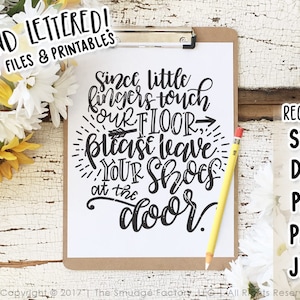 ND LETTERED!
FILES & PRINTABLES
since little
fingers touch
our FLOOR
please leave
YOUR Shoes
at the
door.
REC
S
D
P
P
J
Copyright © 2017 | The Smudge Factory, LLC | All Rights Reserved